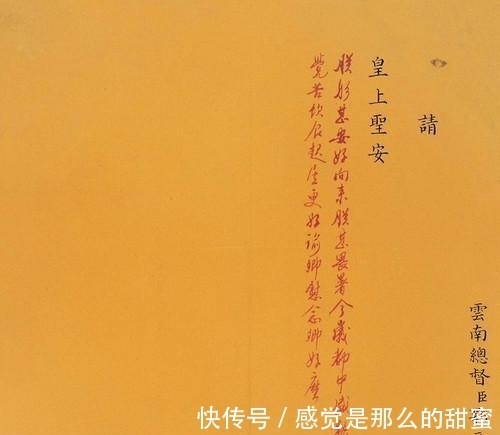 雲南總督臣
請
皇上聖安
朕躬甚安好向來朕甚畏暑今歲都中
覺苦飲食起居更好諭卿慰念卿好麼
快传号 / 感觉是那么的甜蜜